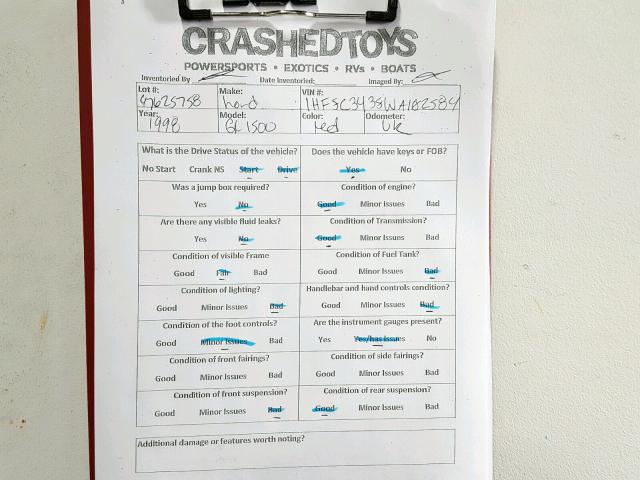 CRASHEDTOYS
POWERSPORTS • EXOTICS • RVs • BOATS
Inventoried By Date Inventoried: Imaged By:
Lot #: Make: VIN #:
47625758 hond 1HFSC3438WA182584
Year: Model: Color: Odometer:
1998 GL1500 red Uk
What is the Drive Status of the vehicle? Does the vehicle have keys or FOB?
No Start Crank NS Start Drive Yes No
Was a jump box required? Condition of engine?
Yes No Good Minor Issues Bad
Are there any visible fluid leaks? Condition of Transmission?
Yes No Good Minor Issues Bad
Condition of visible Frame Condition of Fuel Tank?
Good Fair Bad Good Minor Issues Bad
Condition of lighting? Handlebar and hand controls condition?
Good Minor Issues Bad Good Minor Issues Bad
Condition of the foot controls? Are the instrument gauges present?
Good Minor Issues Bad Yes Yes/has issues No
Condition of front fairings? Condition of side fairings?
Good Minor Issues Bad Good Minor Issues Bad
Condition of front suspension? Condition of rear suspension?
Good Minor Issues Bad Good Minor Issues Bad
Additional damage or features worth noting?